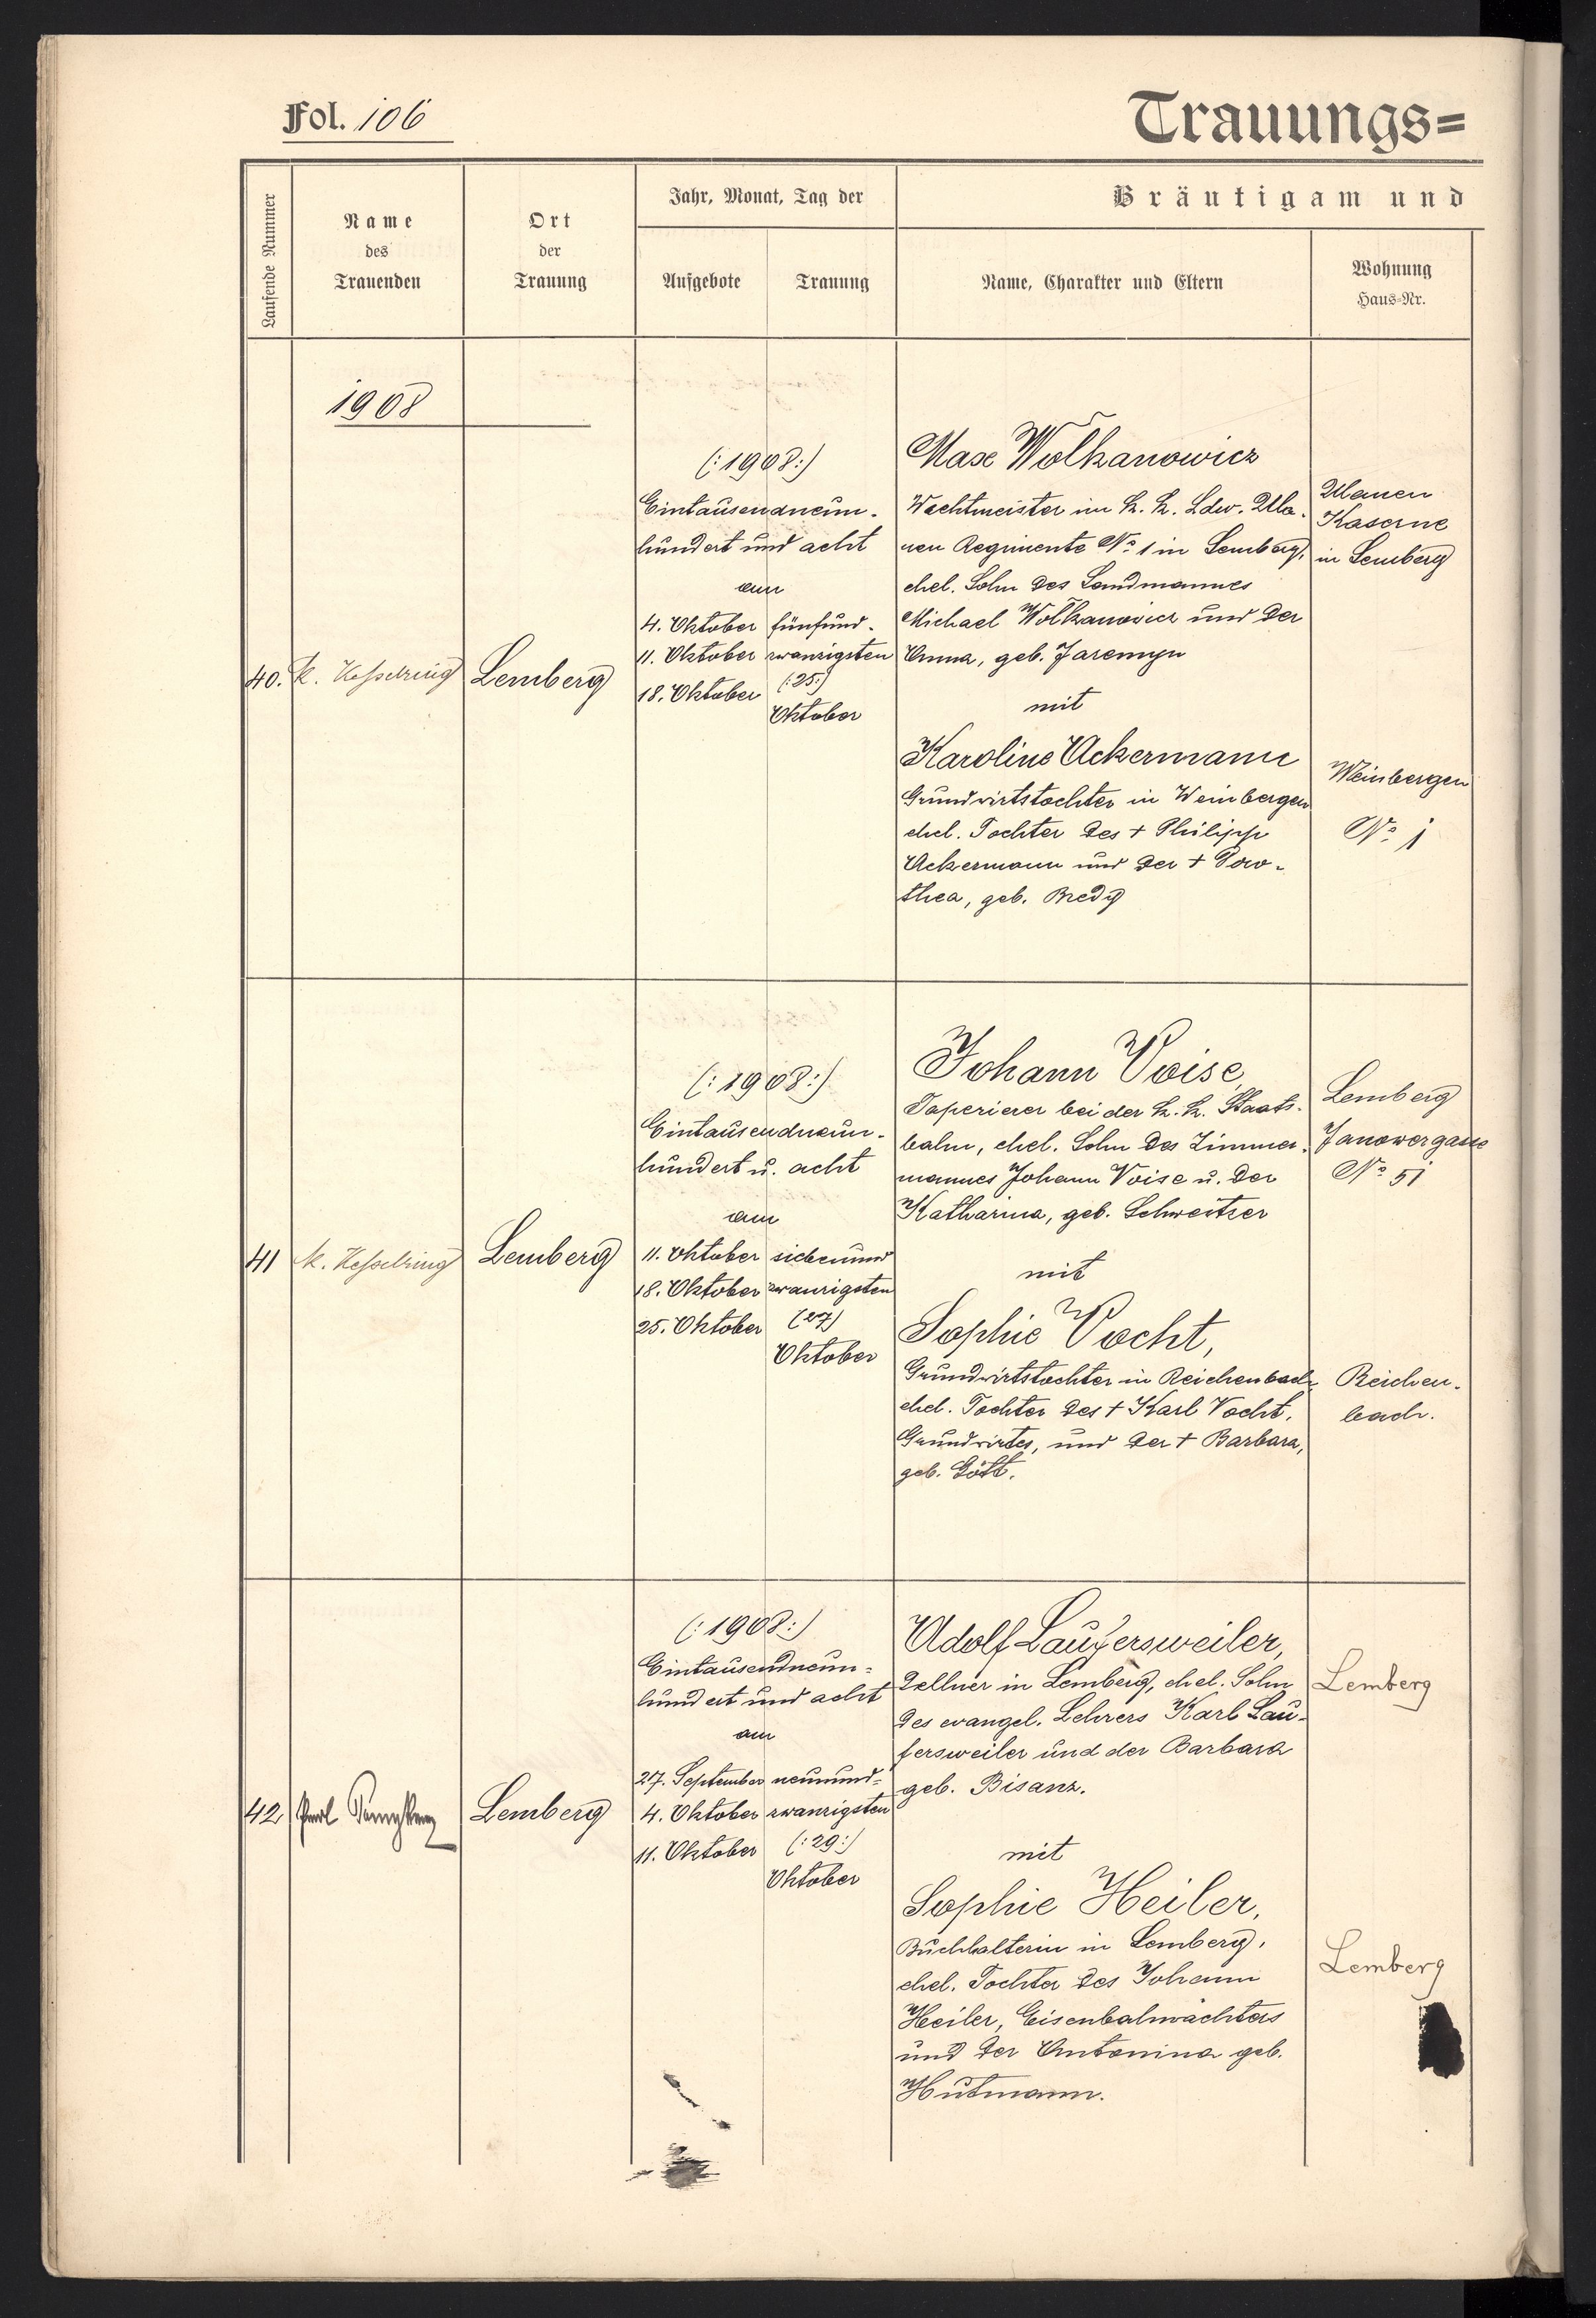 Fol. 106
Trauungs=
Laufende Nummer
Name
des
Trauenden
Ort
der
Trauung
Jahr, Monat, Tag der
Aufgebote
Trauung
Bräutigam und
Name, Charakter und Eltern
Wohnung
Haus=Nr.
1908
40.
K. Kesselring
Lemberg
(:1908:)
Eintausendneun-
hundert und acht
am
4. Oktober
11. Oktober
18. Oktober
fünfund-
zwanzigsten
(:25:)
Oktober
Max Wolkanowicz
Wachtmeister im k. k. Ldw. Ula-
nen Regimente No 1 in Lemberg,
ehel. Sohn des Landmannes
Michael Wolkanowicz und der
Anna, geb. Jaremyn
mit
Karoline Ackermann
Grundwirtstochter in Weinbergen
ehel. Tochter des + Philipp
Ackermann und der + Doro-
thea, geb. Bredy
Ulanen
Kaserne
in Lemberg
Weinbergen
No 1
41
K. Kesselring
Lemberg
(:1908:)
Eintausendneun-
hundert u. acht
am
11. Oktober
18. Oktober
25. Oktober
siebenund
zwanzigsten
(27)
Oktober
Johann Voise,
Taperierer bei der k. k. Staats-
bahn, ehel. Sohn des Zimmer-
mannes Johann Voise u. der
Katharina, geb. Schweitzer
mit
Sophie Vocht,
Grundwirtstochter in Reichenbach
ehel. Tochter des + Karl Vocht,
Grundwirtes, und der + Barbara,
geb. Gött.
Lemberg
Janowergasse
No 51
Reichen-
bach.
42
Lemberg
(:1908:)
Eintausendneun-
hundert und acht
am
27. September
4. Oktober
11. Oktober
neunund-
zwanzigsten
(:29:)
Oktober
Adolf Laufersweiler,
Zellner in Lemberg, ehel. Sohn
des evangel. Lehrers Karl Lau-
fersweiler und der Barbara
geb. Bisanz.
mit
Sophie Heiler,
Buchhalterin in Lemberg,
ehel. Tochter des Johann
Heiler, Eisenbahnwächters
und der Antonina geb.
Hutmann.
Lemberg
Lemberg